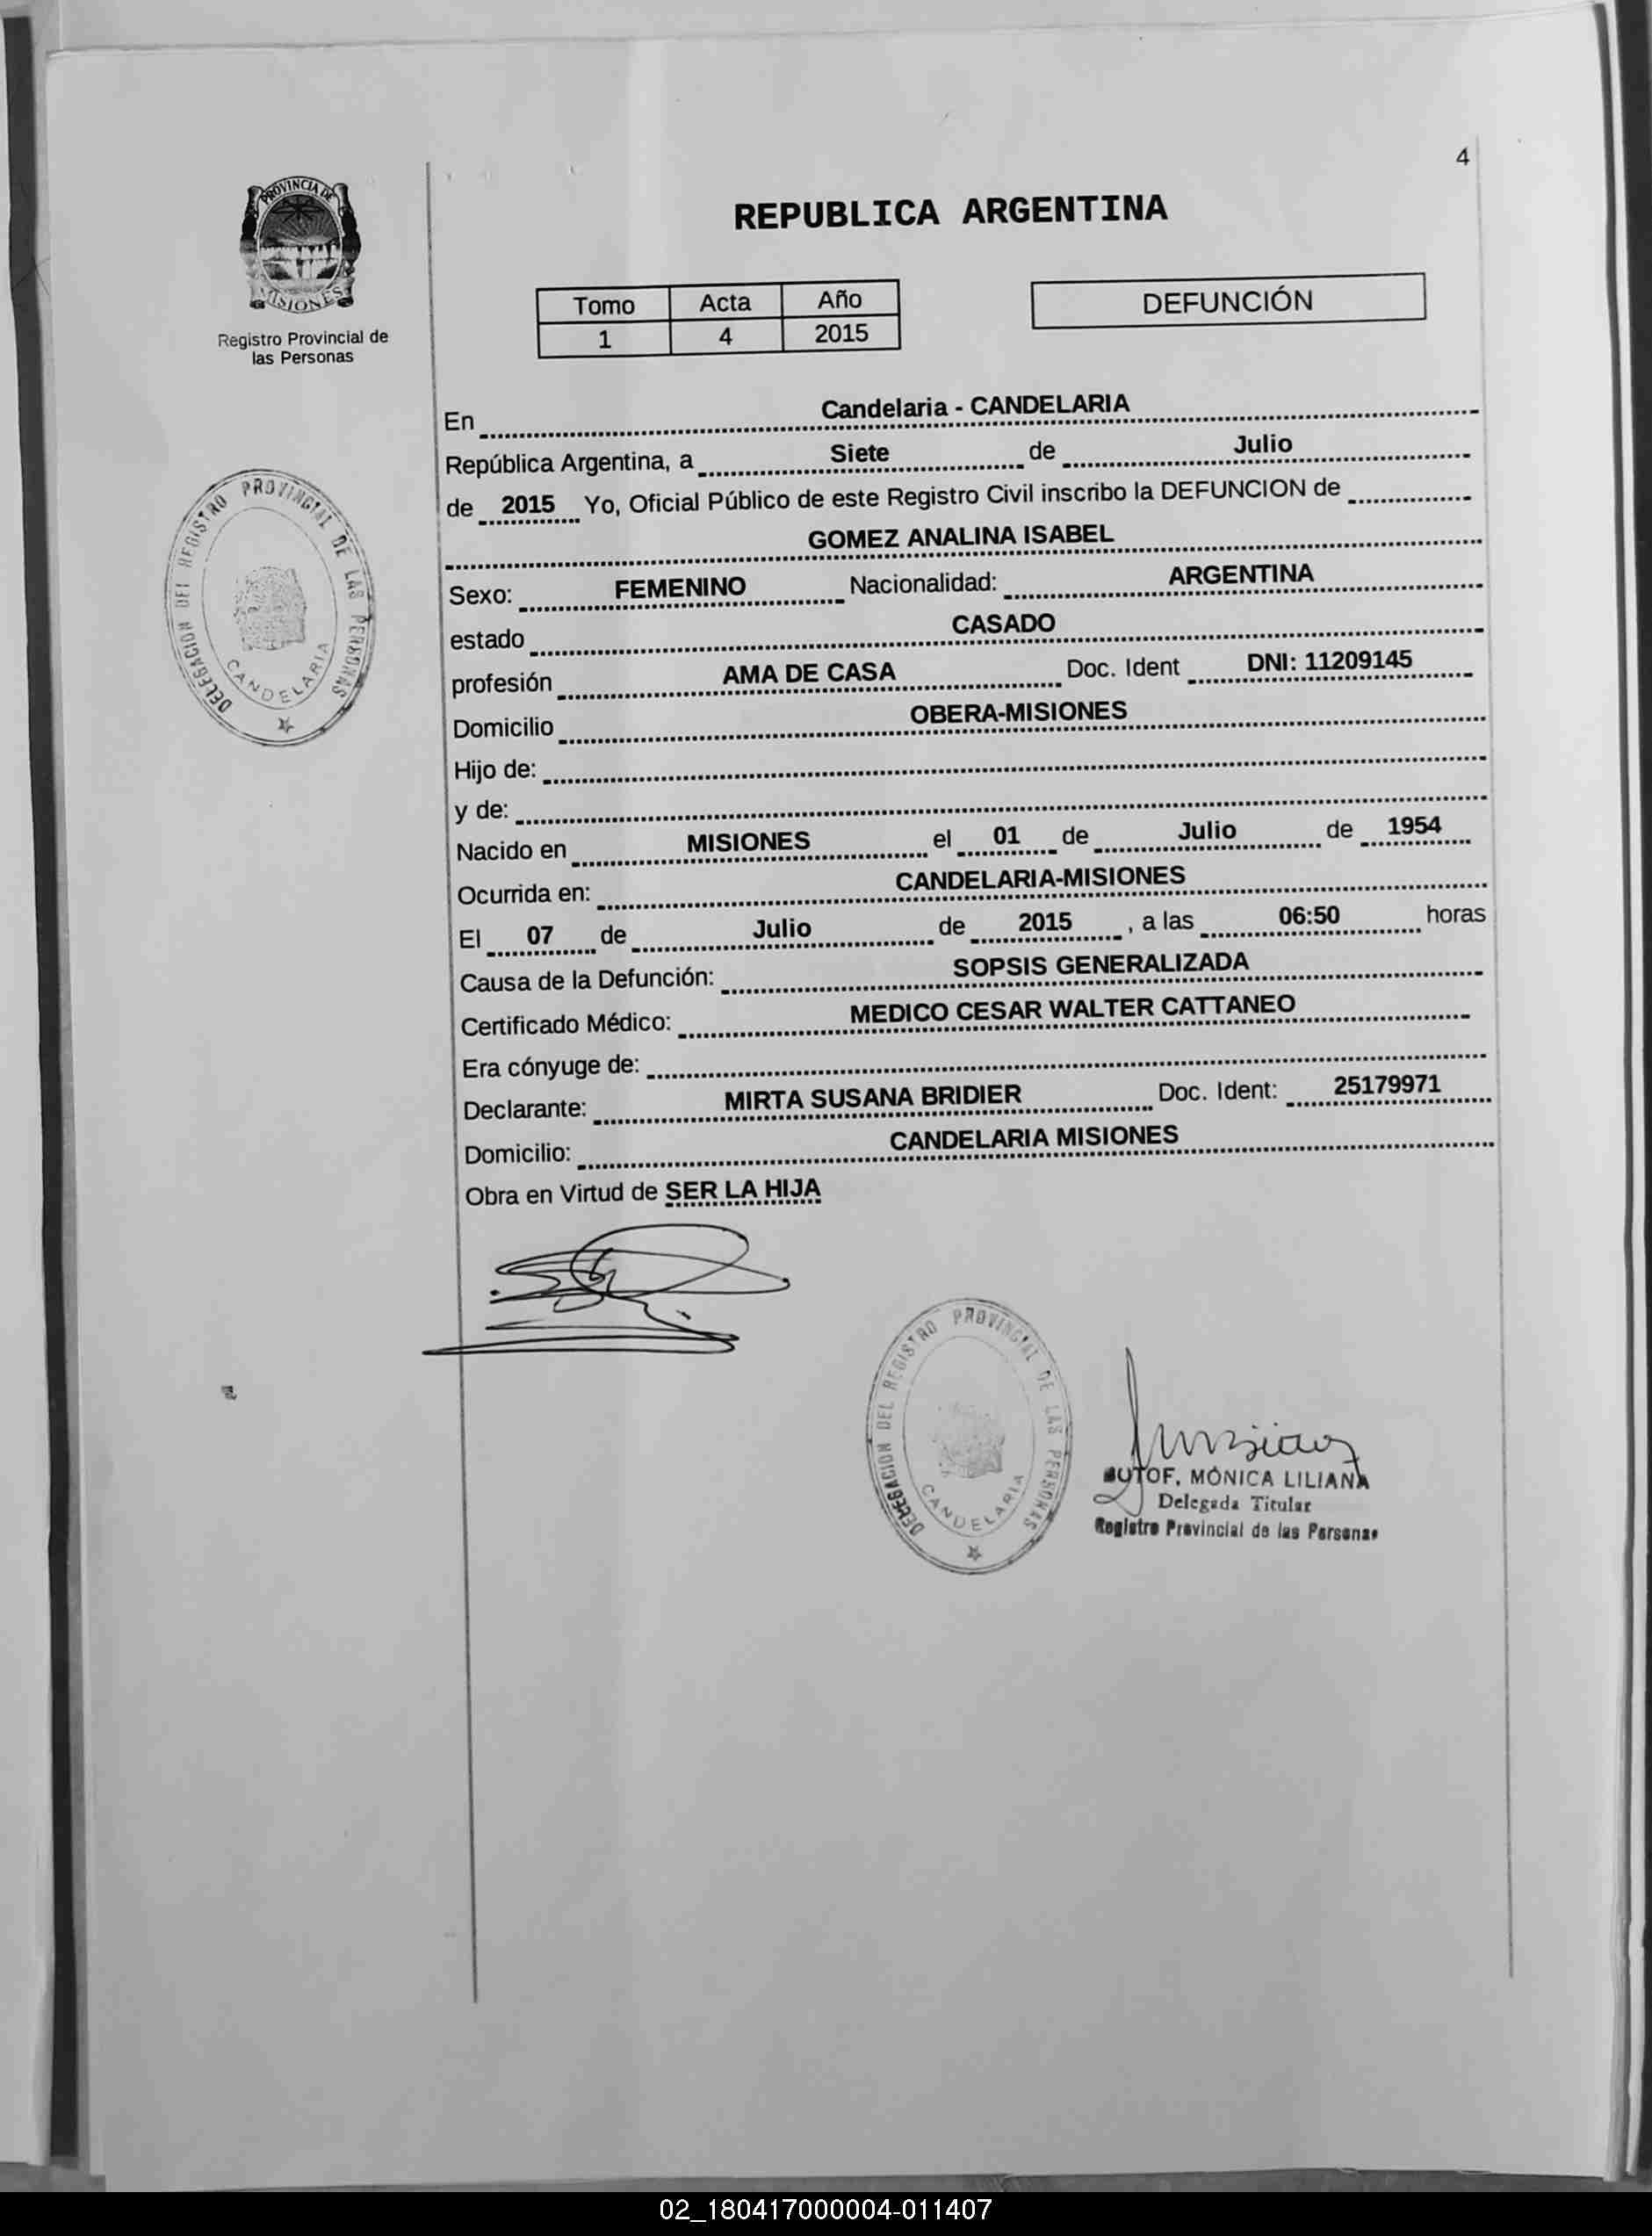 4
PROVINCIA DE
MISIONES
Registro Provincial de
las Personas
REPUBLICA ARGENTINA
Tomo Acta Año
1 4 2015
DEFUNCIÓN
En Candelaria - CANDELARIA
República Argentina, a Siete de Julio
de 2015 Yo, Oficial Público de este Registro Civil inscribo la DEFUNCION de
GOMEZ ANALINA ISABEL
Sexo: FEMENINO Nacionalidad: ARGENTINA
estado CASADO
profesión AMA DE CASA Doc. Ident DNI: 11209145
Domicilio OBERA-MISIONES
Hijo de:
y de:
Nacido en MISIONES el 01 de Julio de 1954
Ocurrida en: CANDELARIA-MISIONES
El 07 de Julio de 2015 , a las 06:50 horas
Causa de la Defunción: SOPSIS GENERALIZADA
Certificado Médico: MEDICO CESAR WALTER CATTANEO
Era cónyuge de:
Declarante: MIRTA SUSANA BRIDIER Doc. Ident: 25179971
Domicilio: CANDELARIA MISIONES
Obra en Virtud de SER LA HIJA
DELEGACION DEL REGISTRO PROVINCIAL DE LAS PERSONAS
CANDELARIA
DELEGACION DEL REGISTRO PROVINCIAL DE LAS PERSONAS
CANDELARIA
MÓNICA LILIANA
Delegada Titular
Registro Provincial de las Personas
02_180417000004-011407